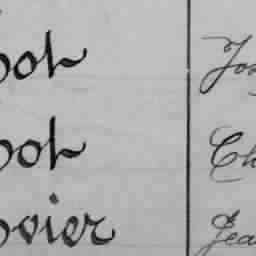 oot Jos
oot Ch
ovier Jea